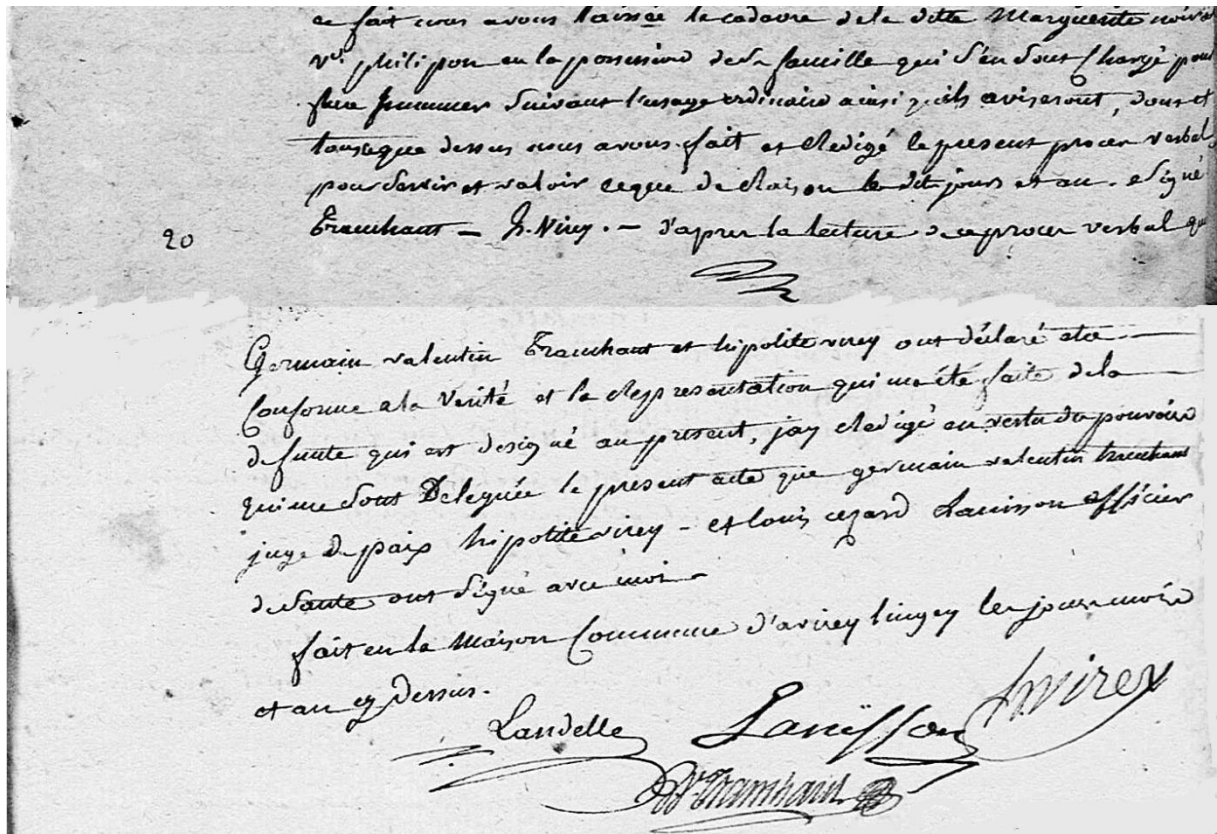 ce fait nous avons laissée le cadavre dela ditte Marguerite noirot
Ve. philipon en la possession de sa famille qui s'en sont Chargé pour
faire Jnnumer suivant l'usage ordinaire ainsi qu'ils aviseront, dont et
tout ceque dessus nous avons fait et Redigé le present procès verbal
pour servir et valoir ceque de Raison les dit jours et an. Signé
Tranchant — h. Virey. — d'apres la lecture de ce procès verbal que
20
Germain valentin Tranchant et hipolite virey ont déclaré etre
Conforme ala Verité et la Representation qui ma été faite dela
defunte qui est designé au present, jay Redigé en vertu des pouvoirs
qui me sont Deleguée le present acte que germain valentin tranchant
juge de paix hipolite virey — et louis cezard Lanisson officier
de Santé ont Signé avec moi —
fait en la Maison Commune d'avirey lingey les jour mois
et an cy dessus.
Landelle Lanisson hvirey
Vt Tranchant